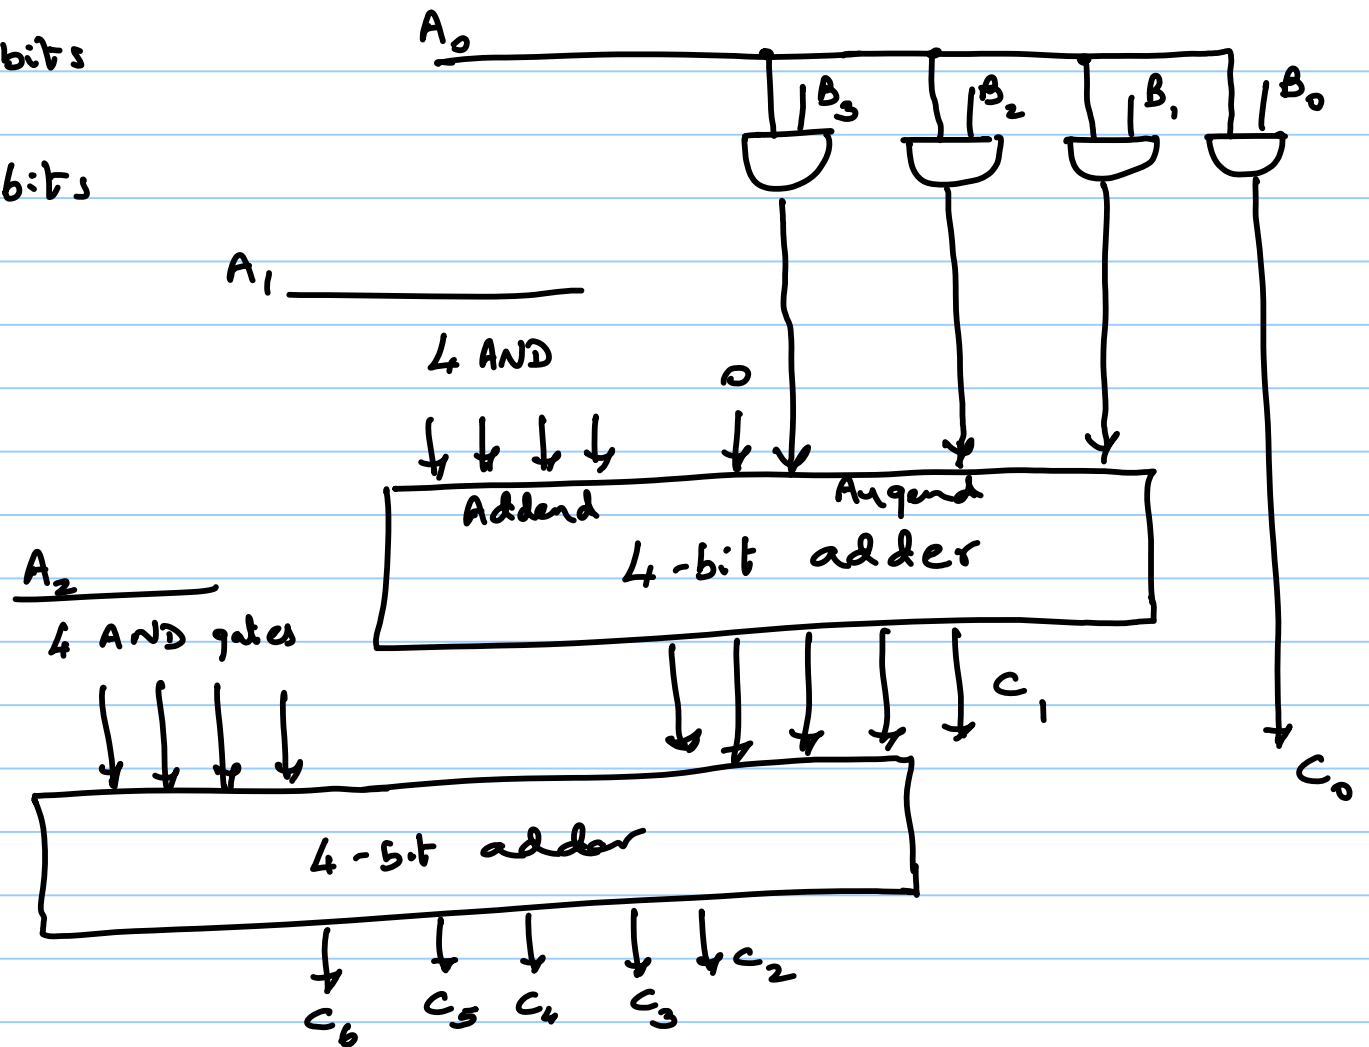 bits
A0
B3
B2
B1
B0
bits
A1
4 AND
0
Addend
Augend
4-bit adder
A2
4 AND gates
C1
C0
4-bit adder
C2
C6
C5
C4
C3